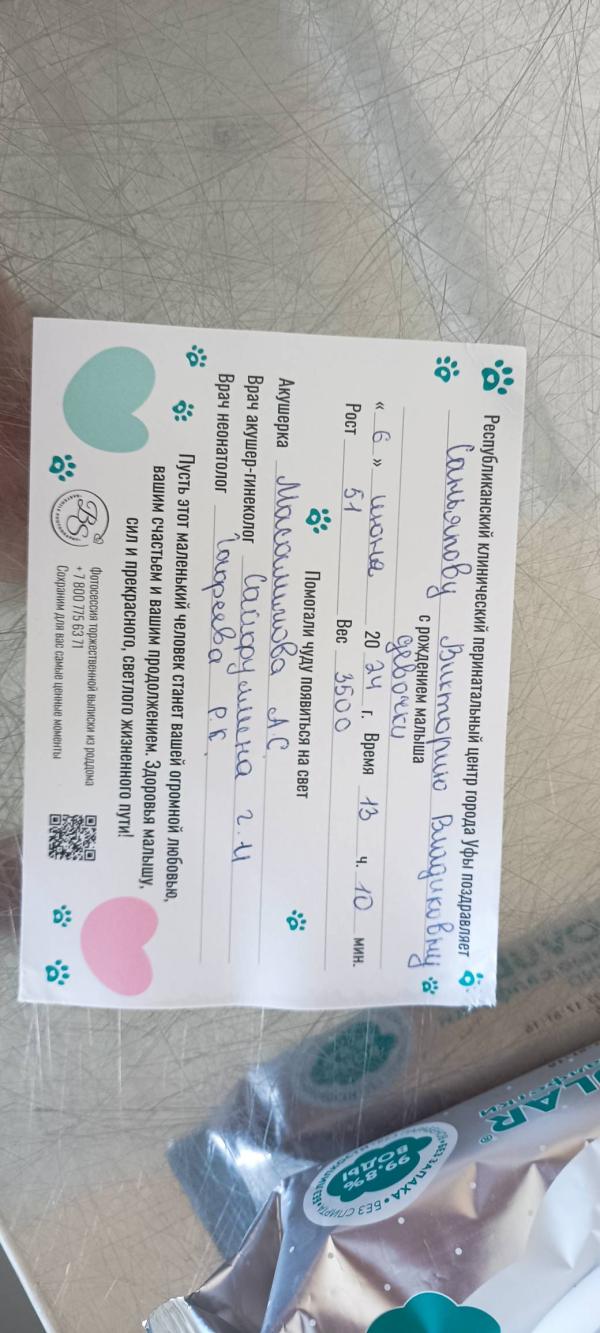 Республиканский клинический перинатальный центр города Уфы поздравляет
Саньяпову Викторию Владиковну
с рождением малыша
девочки
« 6 » июня 20 24 г. Время 13 ч. 10 мин.
Рост 51 Вес 3500
Помогали чуду появиться на свет
Акушерка Масалимова А.С.
Врач акушер-гинеколог Г.И
Врач неонатолог Гафреева Р.К.
Пусть этот маленький человек станет вашей огромной любовью,
вашим счастьем и вашим продолжением. Здоровья малышу,
сил и прекрасного, светлого жизненного пути!
BS
Фотосессия торжественной выписки из роддома
+7 800 775 63 71
Сохраним для вас самые ценные моменты
LAR®
99.8%
ВОДЫ
БЕЗ ЗАПАХА • БЕЗ СПИРТА